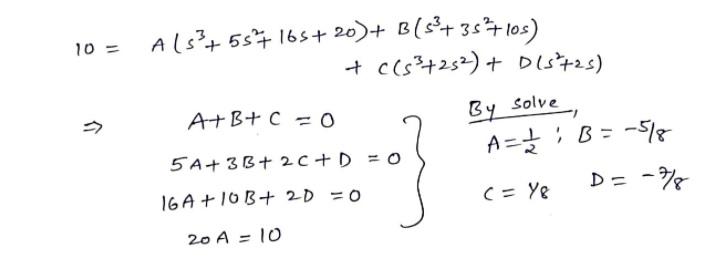 10 = A(s³+ 5s²+ 16s+ 20)+ B(s³+ 3s²+10s)
+ C(s³+2s²) + D(s²+2s)
⇒ A+B+C = 0
5A+3B+2C+D = 0
16A+10B+2D = 0
20A = 10
By solve,
A=1/2 ; B= -5/8
C= 1/8 D= -7/8